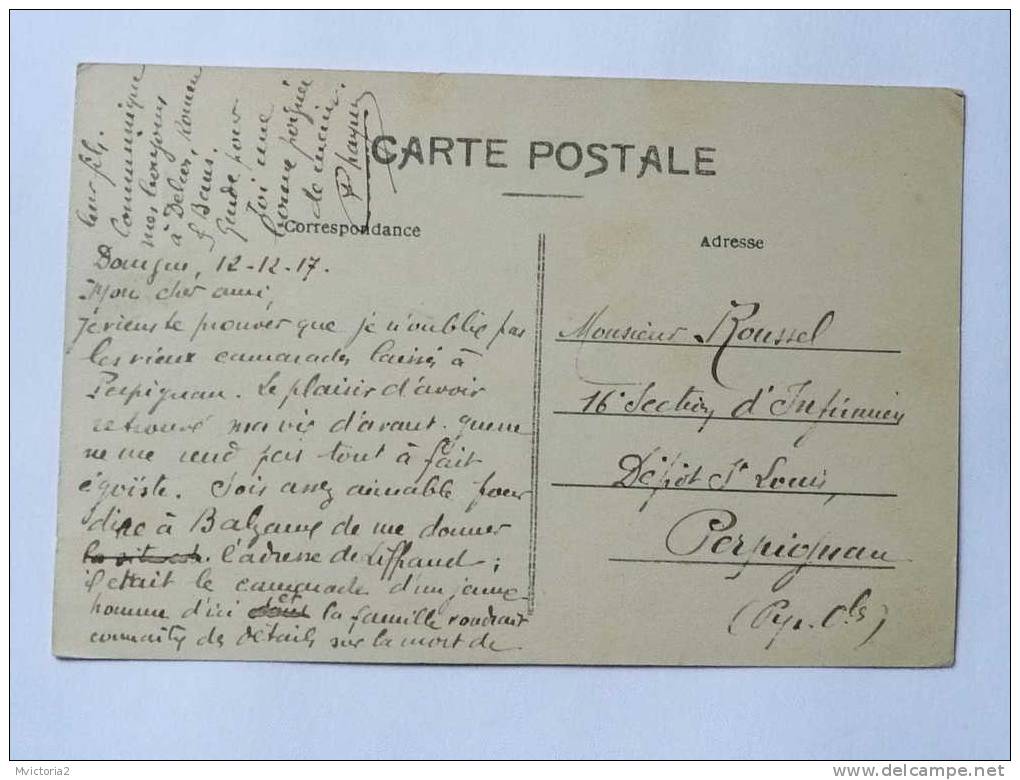 CARTE POSTALE
Correspondance
Adresse
12-12-17.
Mon cher ami,
Je viens te prouver que je n'oublie pas
les vieux camarades laissés à
Perpignan. Le plaisir d'avoir
retrouvé ma vie d'avant-guerre
ne me rend pas tout à fait
égoïste. Sois assez aimable pour
dire à de me donner
l'adresse de Liffraud ;
il était le camarade d'un jeune
homme d'ici et la famille voudrait
connaître des détails sur la mort de
leur fils.
Communique
mes bonjours
à
Garde pour
Toi une
bonne poignée
de main.
Monsieur Roussel
16e Section d'Infirmiers
Dépôt St Louis,
Perpignan
(Pyr. Oles)
Mvictoria2
http://www.delcampe.net